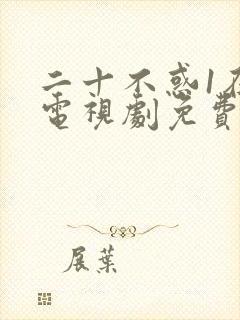 二十不惑1
電視劇免費
展葉